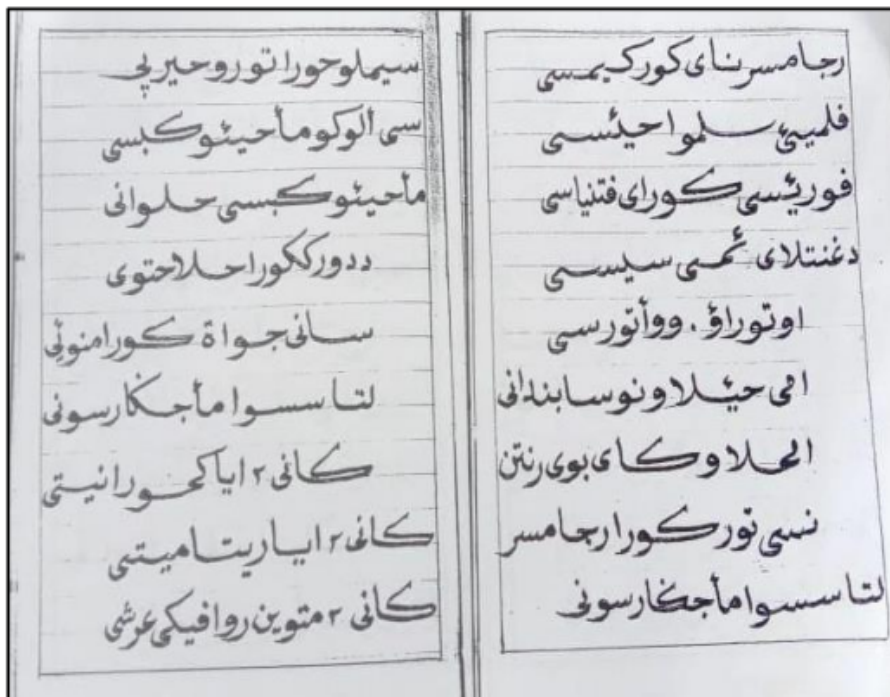 رجا مسرناى كوركيمسي
فلميئ سلموا حيئسي
فوريئسي كوراى فتنياسي
دغنتلاى ئمي سيسي
اوتوراؤ. ووأتورسي
امي حيئلا ونوسابنداني
الحلا وكاى بوى رنتن
نسي توركورا رجا مسر
لتاسسوا مأجكارسوني
سيملو حوراتوروحيرپي
سي ألوكو مأحيئوكبسي
مأحيئوكبسي حلواني
ددوركڪورا حلا حتوى
ساني جواة كورامنوئي
لتاسسوا مأجكارسوني
كاني ٢ اياكحورانيتي
كاني ٢ اياريتاميتي
كاني ٢ متوين روافيكي عرشي